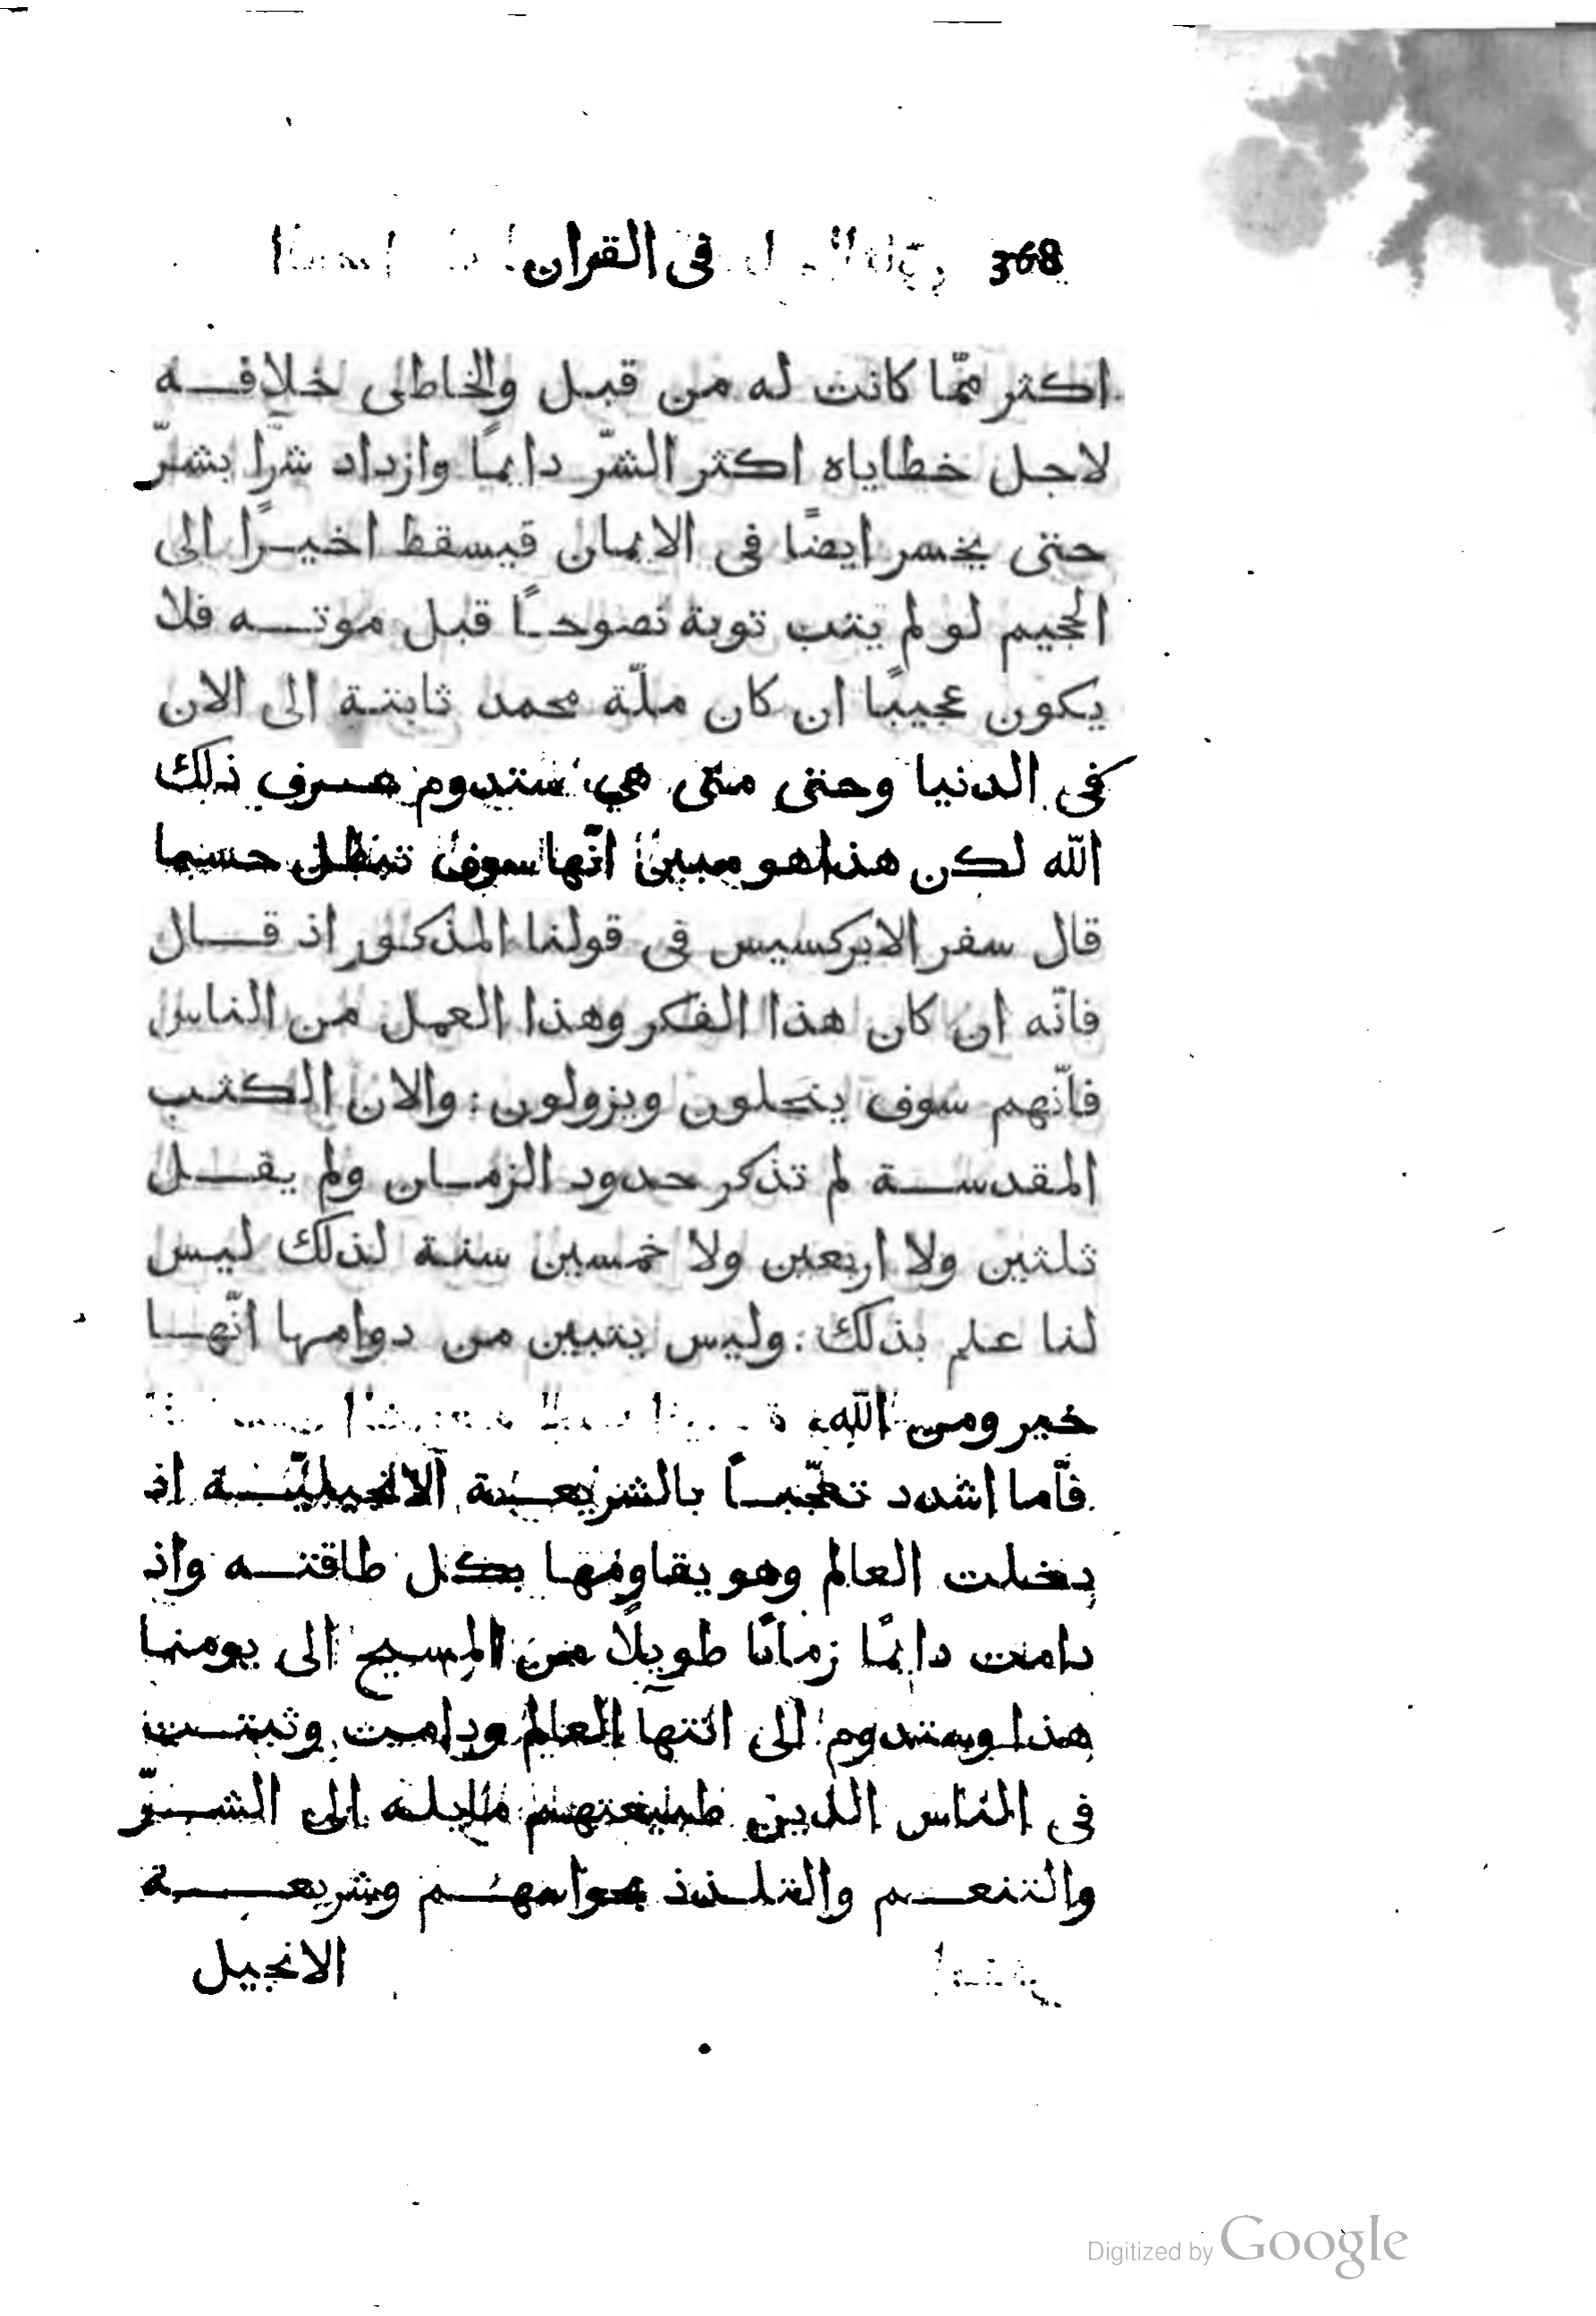 368 فى القران
اكثر ممّا كانت له من قبل والخاطى خلافه
لاجل خطاياه اكثر الشرّ دايمًا وازداد شرًّا بشرّ
حتى يخسر ايضًا فى الايمان فيسقط اخيرًا الى
الجحيم لو لم يتب توبة نصوحًا قبل موته فلا
يكون عجيبًا ان كان ملّة محمد ثابتة الى الان
فى الدنيا وحتى متى هى ستدوم صرف ذلك
الله لكن هذا هو مبين انّها سوف تبطل حسبما
قال سفر الابركسيس فى قولنا المذكور اذ قال
فانّه ان كان هذا الفكر وهذا العمل من الناس
فانّهم سوف ينحلون ويزولون : والان الكتب
المقدسة لم تذكر حدود الزمان ولم يقل
ثلثين ولا اربعين ولا خمسين سنة لذلك ليس
لنا علم بذلك : وليس يتبين من دوامها انّها
خير ومن الله
فأما اشدد تعجّبًا بالشريعة الانجيليّة اذ
دخلت العالم وهو يقاومها بكل طاقته واذ
دامت دايمًا زمانًا طويلًا من المسيح الى يومنا
هذا وستدوم الى انتهآ العالم ودامت وثبتت
فى الناس الذين طبيعتهم مايلة الى الشرّ
والتنعم والتلذذ بحواسهم وشريعة
الانجيل
Digitized by Google